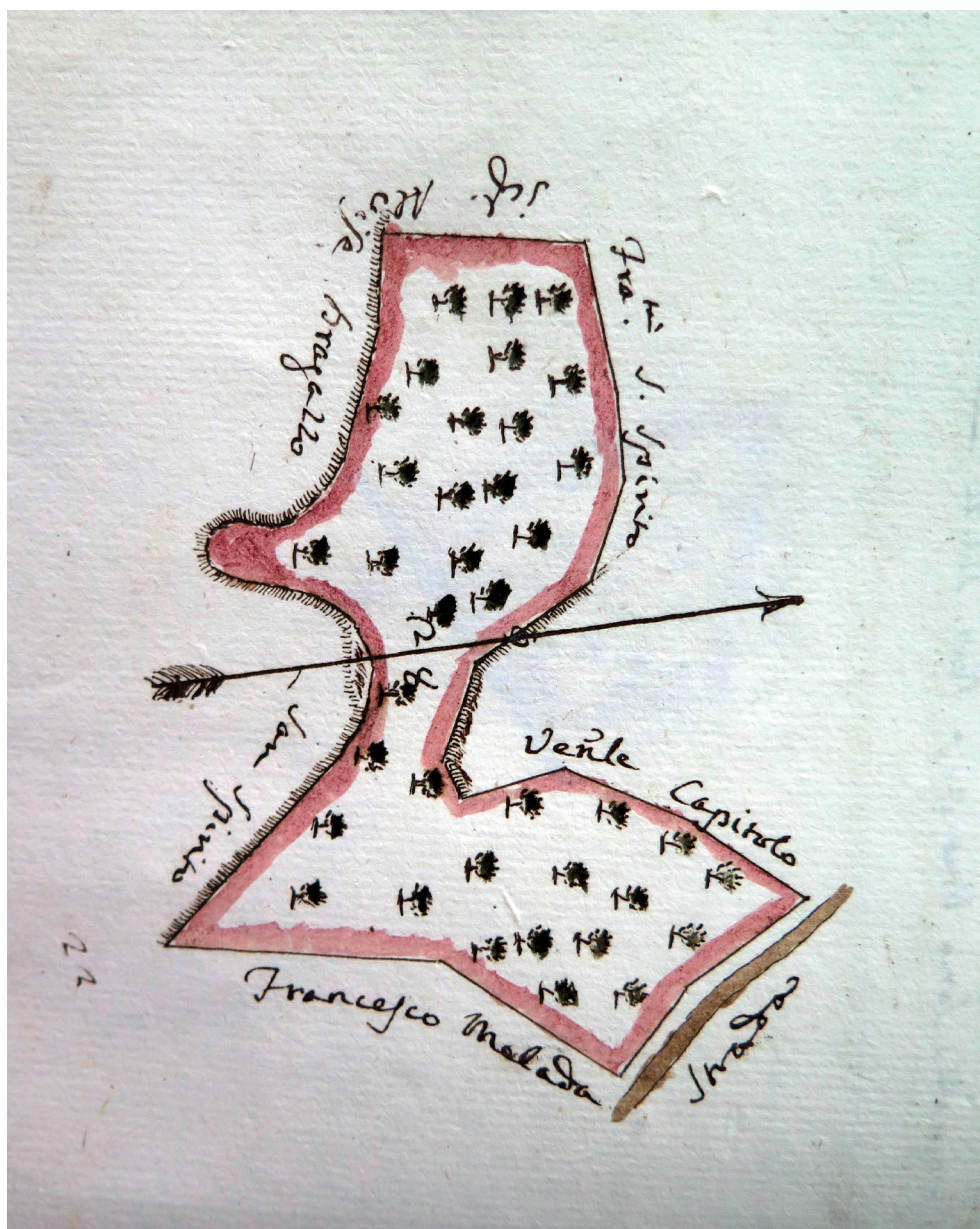 Sigr.
Alvise Bragazzo
Frat. S. Spirito
San Spirito
28
Venle Capitolo
Francesco Melada
Strada
22